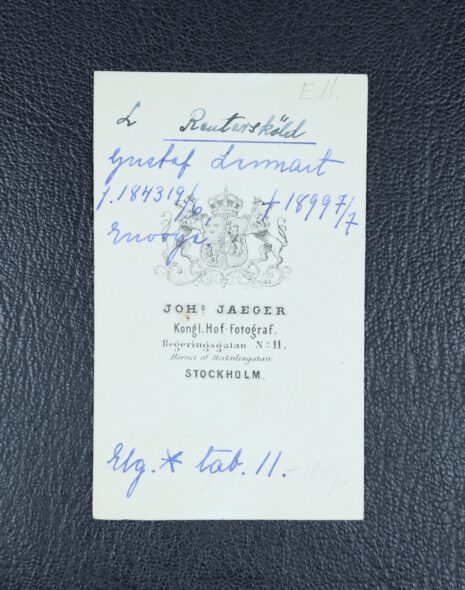 E 11.
L Reutersköld
Gustaf Lennart
f. 1843 19/6. + 1899 7/7
JOHS JAEGER
Kongl. Hof-Fotograf.
Regeringsgatan No 11.
Hörnet af Herkulesgatan
STOCKHOLM.
Elg. * tab. 11.